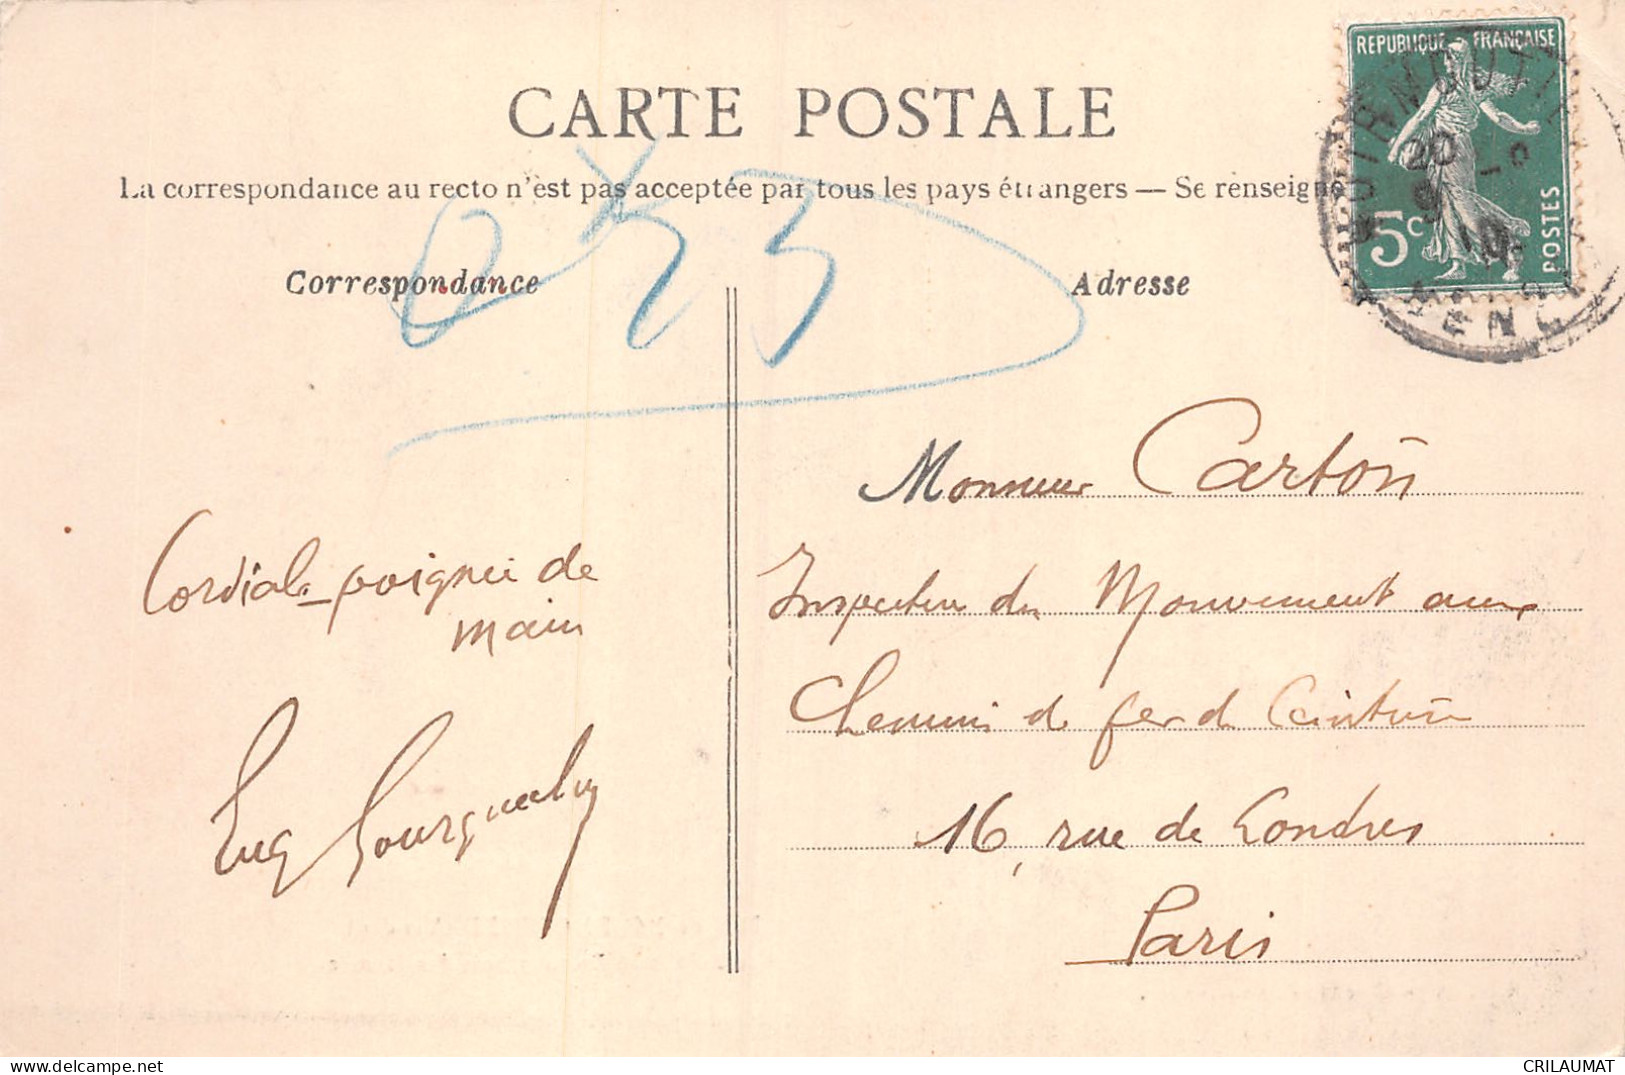 CARTE POSTALE
La correspondance au recto n'est pas acceptée par tous les pays étrangers — Se renseigne
Correspondance
Adresse
REPUBLIQUE FRANÇAISE
5c
POSTES
0 25
Monsieur Carton
Inspecteur du Mouvement aux
Chemins de fer de Ceinture
16, rue de Londres
Paris
Cordiale poignée de
main
Eug
CRILAUMAT